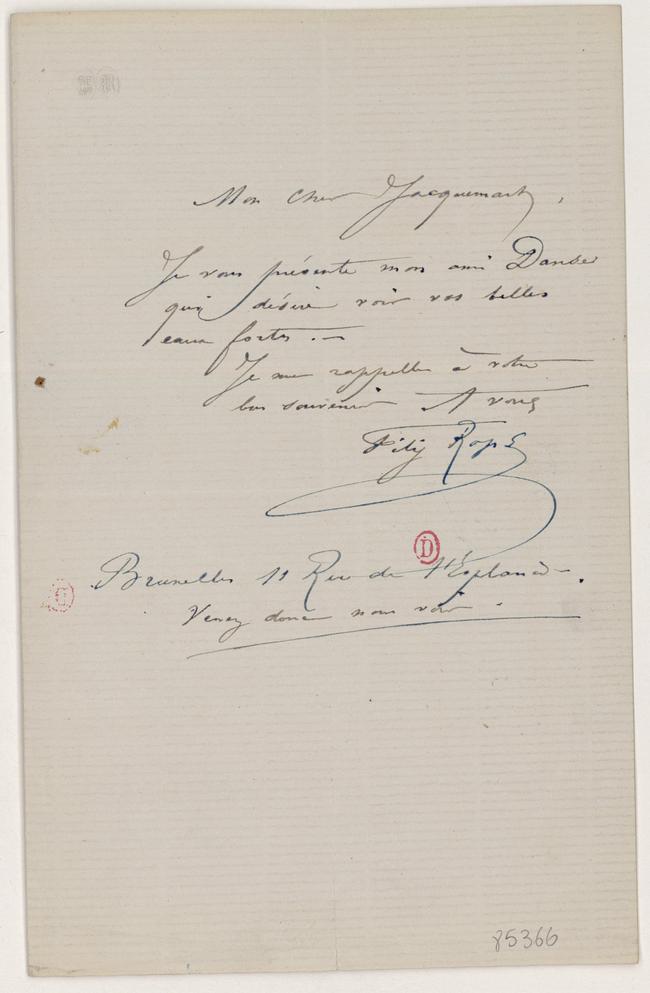 Mon cher Jacquemart,
Je vous présente mon ami Danse
qui désire voir vos belles
eaux fortes. —
Je me rappelle à votre
bon souvenir A vous
Fély Rops
D
Bruxelles 11 Rue de l'Esplanade.
Venez donc nous voir.
85366